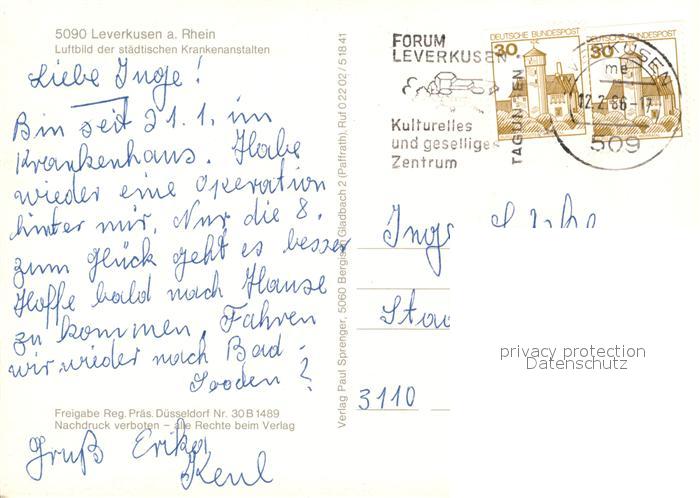 5090 Leverkusen a. Rhein
Luftbild der städtischen Krankenanstalten
Liebe Inge!
Bin seit 21.1. im
Krankenhaus. Habe
wieder eine Operation
hinter mir. Nur die 8.
zum glück geht es besser
Hoffe bald nach Hause
zu kommen. Fahren
wir wieder nach Bad-
Sooden?
Freigabe Reg. Präs. Düsseldorf Nr. 30 B 1489
Nachdruck verboten – alle Rechte beim Verlag
Gruß Erika
Keul
Verlag Paul Sprenger, 5060 Bergisch Gladbach 2 (Paffrath), Ruf 0 22 02 / 5 18 41
FORUM
LEVERKUSEN
Kulturelles
und geselliges
Zentrum
TAGUNGEN
DEUTSCHE BUNDESPOST
30
DEUTSCHE BUNDESPOST
30
LEVERKUSEN
me
12.2.86-17
509
Inge
Stau
3110
privacy protection
Datenschutz